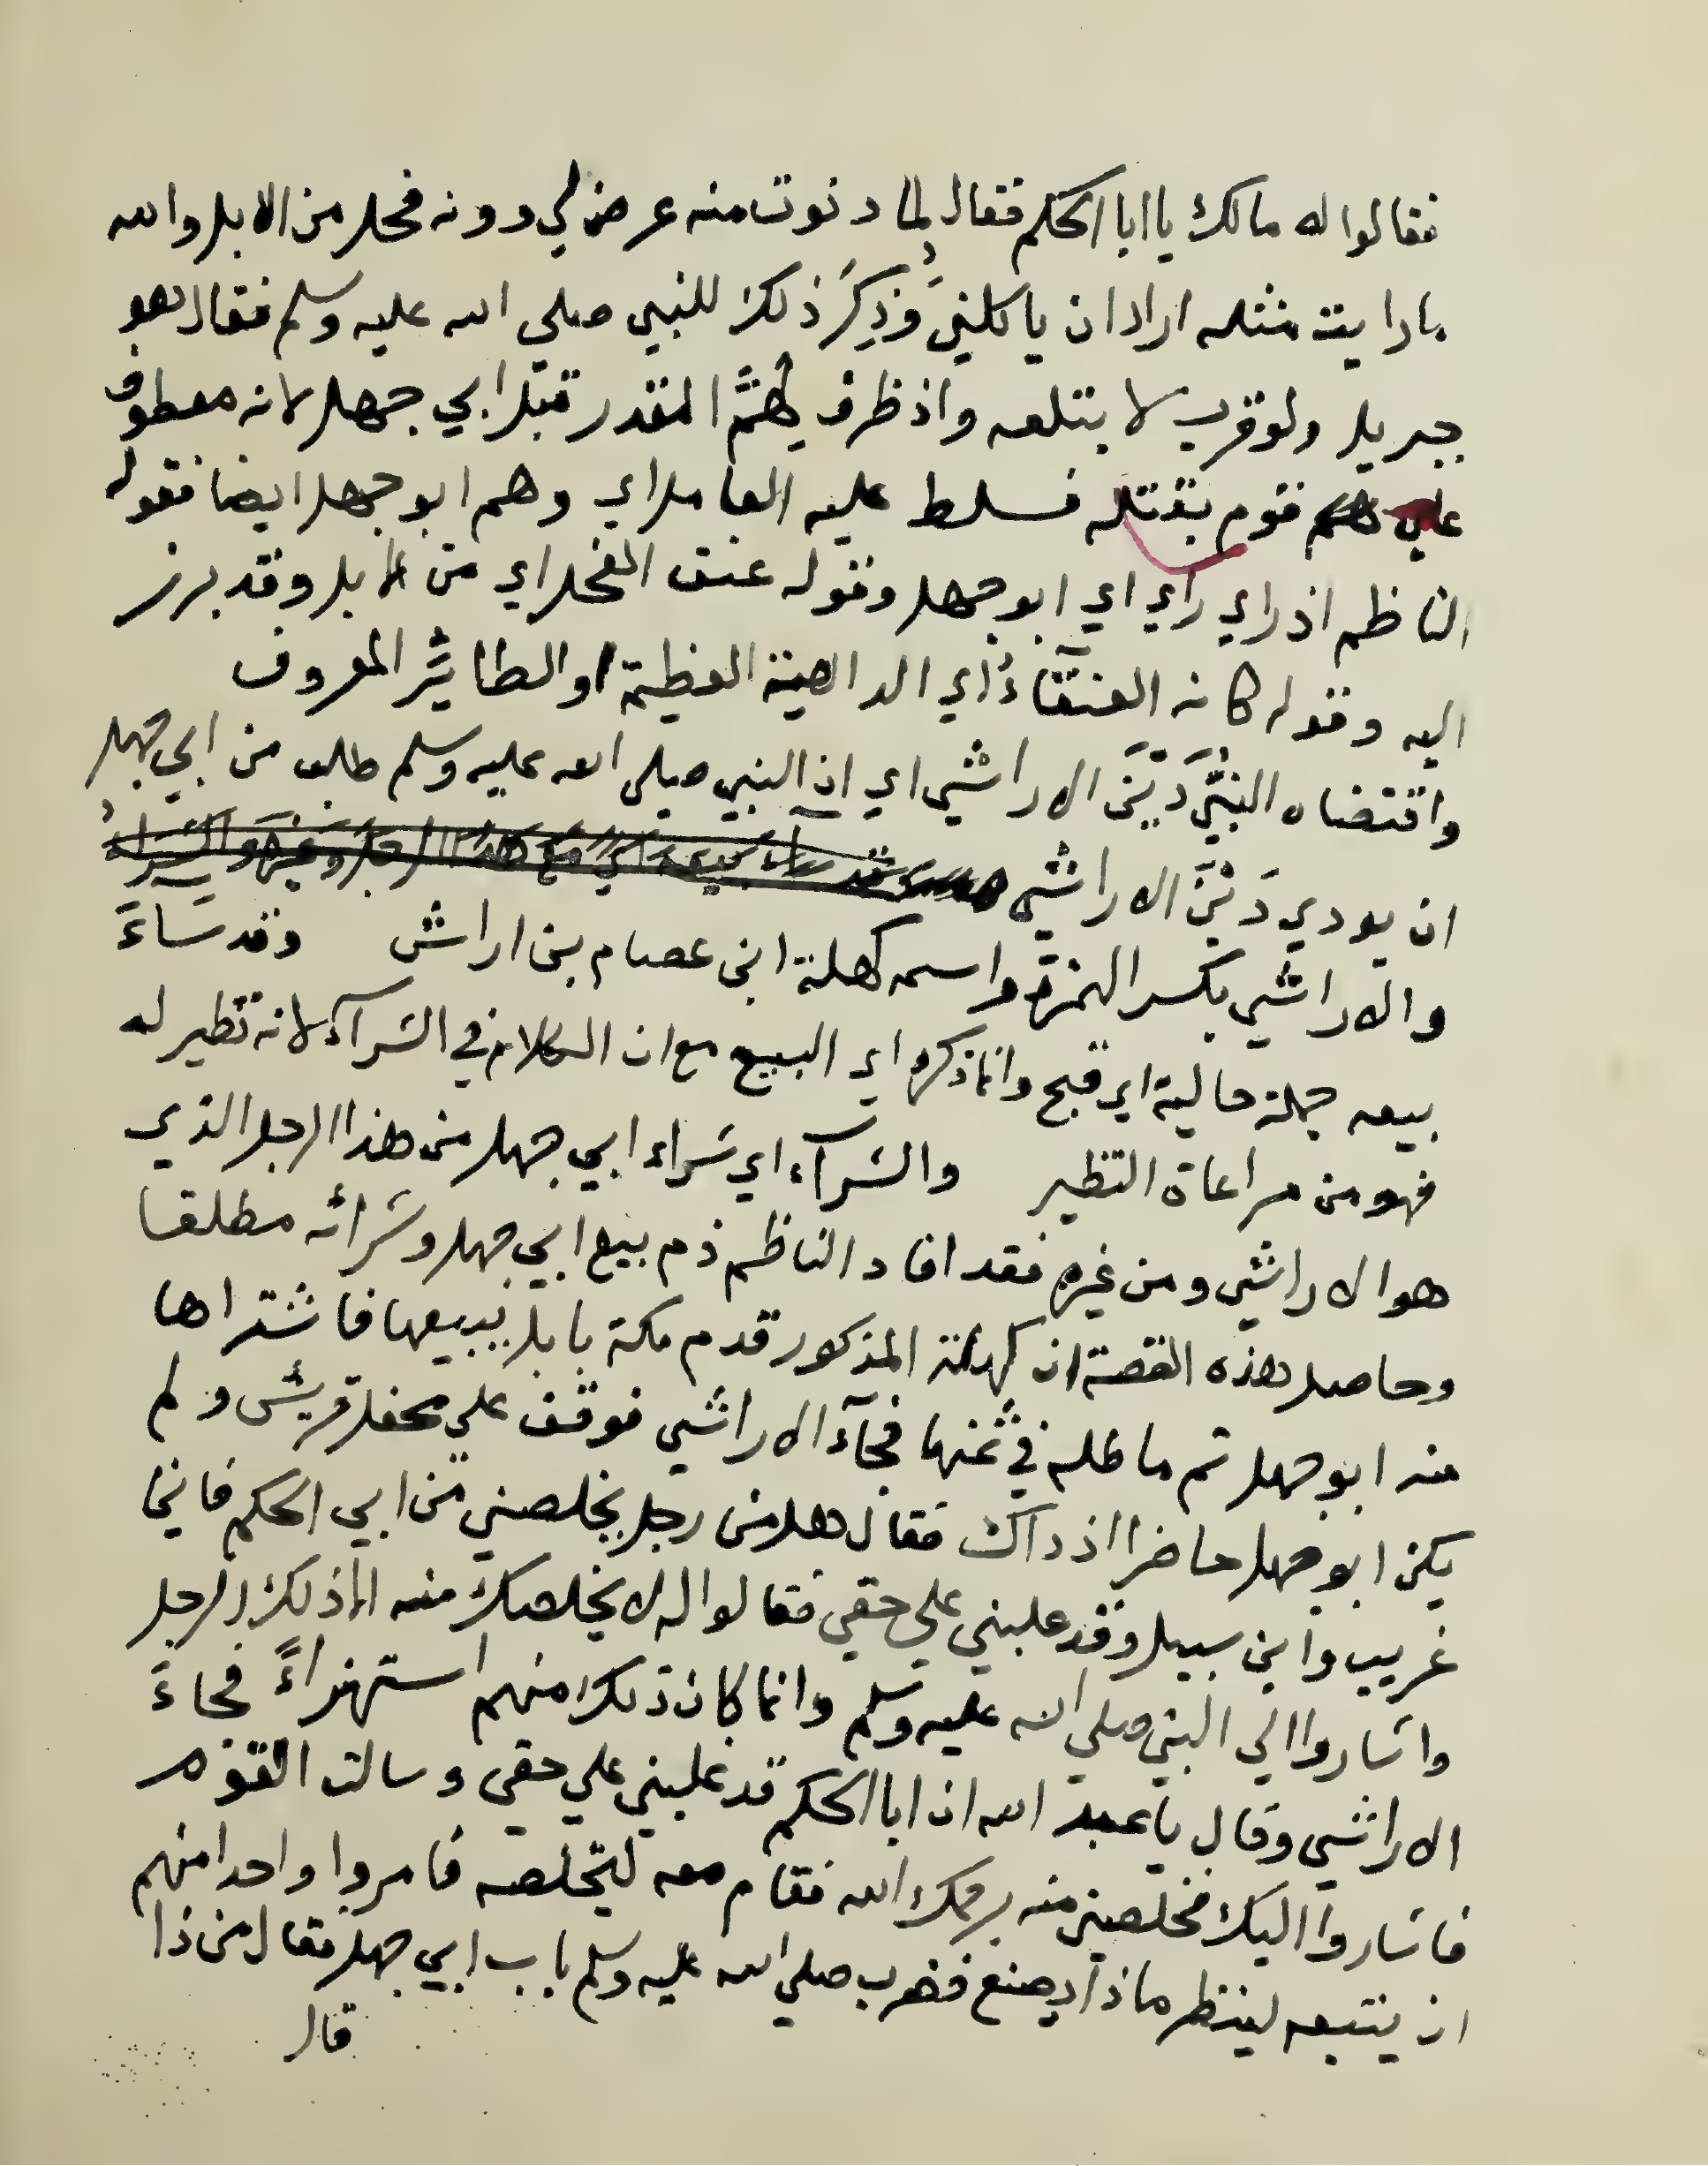 فقالوا له مالك يا ابا الحكم فقال لما دنوت منه عرض لي دونه فحل من الابل والله
ما رايت مثله اراد ان ياكلني وَذُكِرَ ذلك للنبي صلي الله عليه وسلم فقال هو
جبريل ولو قرب لابتلعه واذ ظرف لِهَمَّ المقدر قبل ابي جهل لانه معطوف
علي هم قوم بقتله فسلط عليه العامل اي وهم ابو جهل ايضا فقول
الناظم اذ راي راي اي ابو جهل وقوله عنق الفحل اي من الابل وقد برز
اليه وقوله كانه العنقآءُ اي الداهية العظيمة او الطائر المعروف
واقتضاه النبيُّ دَيْنَ الاراشي اي ان النبي صلي الله عليه وسلم طلب من ابي جهل
ان يودي دَيْنَ الاراشي
والاراشي بكسر الهمزة واسمه كهلة ابن عصام بن اراش وقد سَاءَ
بيعه جملة حالية اي قبح وانما ذكره اي البيع مع ان الكلام في الشرآء لانه نظير له
فهو من مراعاة النظير والشرآء اي شراء ابي جهل من هذا الرجل الذي
هو الاراشي ومن غيره فقد افاد الناظم ذم بيع ابي جهل وشرائه مطلقا
وحاصل هذه القصة ان كهلة المذكور قدم مكة بابل يبيعها فاشتراها
منه ابو جهل ثم ماطله في ثمنها فجآء الاراشي فوقف علي محفل قريش ولم
يكن ابو جهل حاضرا اذ ذاك فقال هل من رجل يخلصني من ابي الحكم فاني
غريب وابن سبيل وقد غلبني علي حقي فقالوا له لا يخلصك منه الا ذلك الرجل
واشاروا الي النبي صلي الله عليه وسلم وانما كان ذلك منهم استهزاءً فجاءَ
الاراشي وقال يا عبد الله ان ابا الحكم قد غلبني علي حقي وسالت القوم
فاشاروا اليك فخلصني منه يرحمك الله فقام معه ليخلصه فامروا واحدا منهم
ان يتبعه لينظر ماذا يصنع فضرب صلي الله عليه وسلم باب ابي جهل فقال من ذا
قال